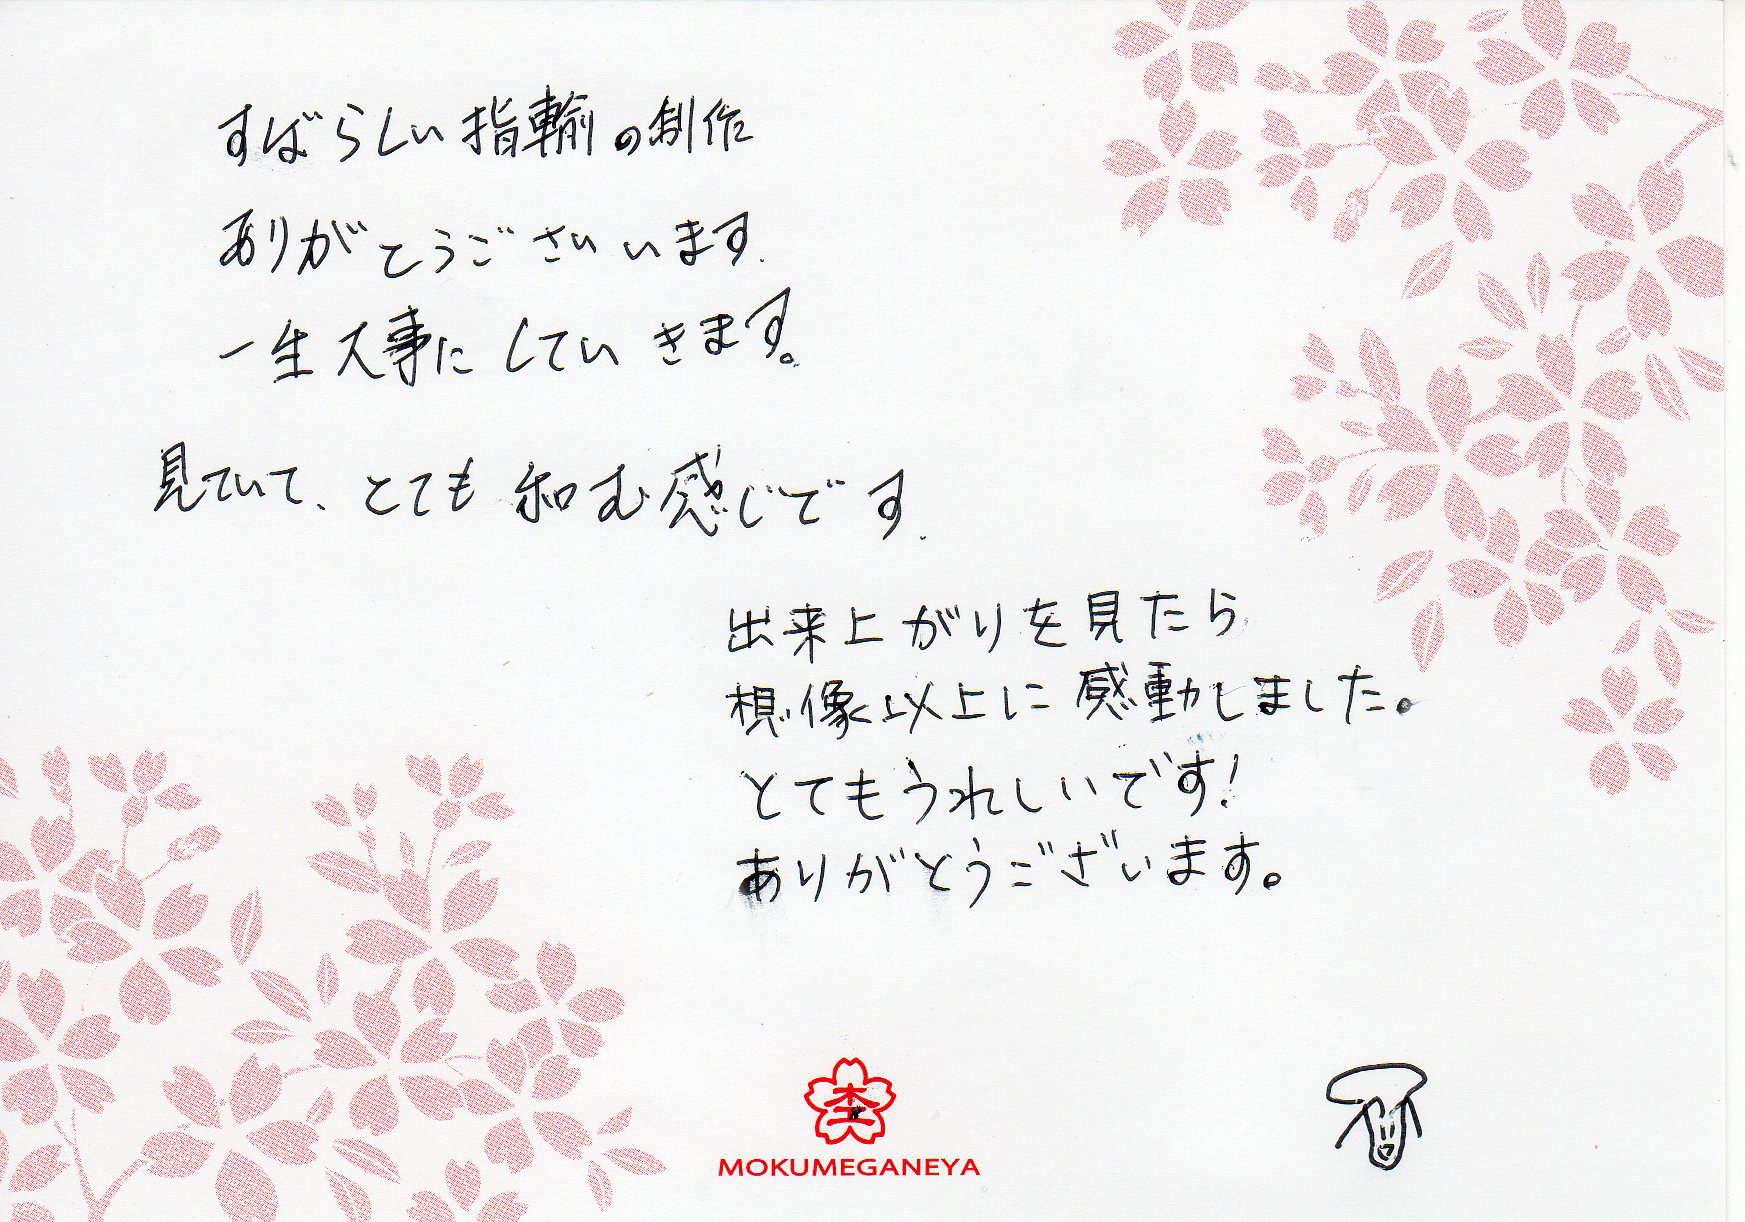 すばらしい指輪の制作
ありがとうございます.
一生大事にしていきます。
見ていて、とても和む感じです.
出来上がりを見たら
想像以上に感動しました。
とてもうれしいです!
ありがとうございます。
MOKUMEGANEYA